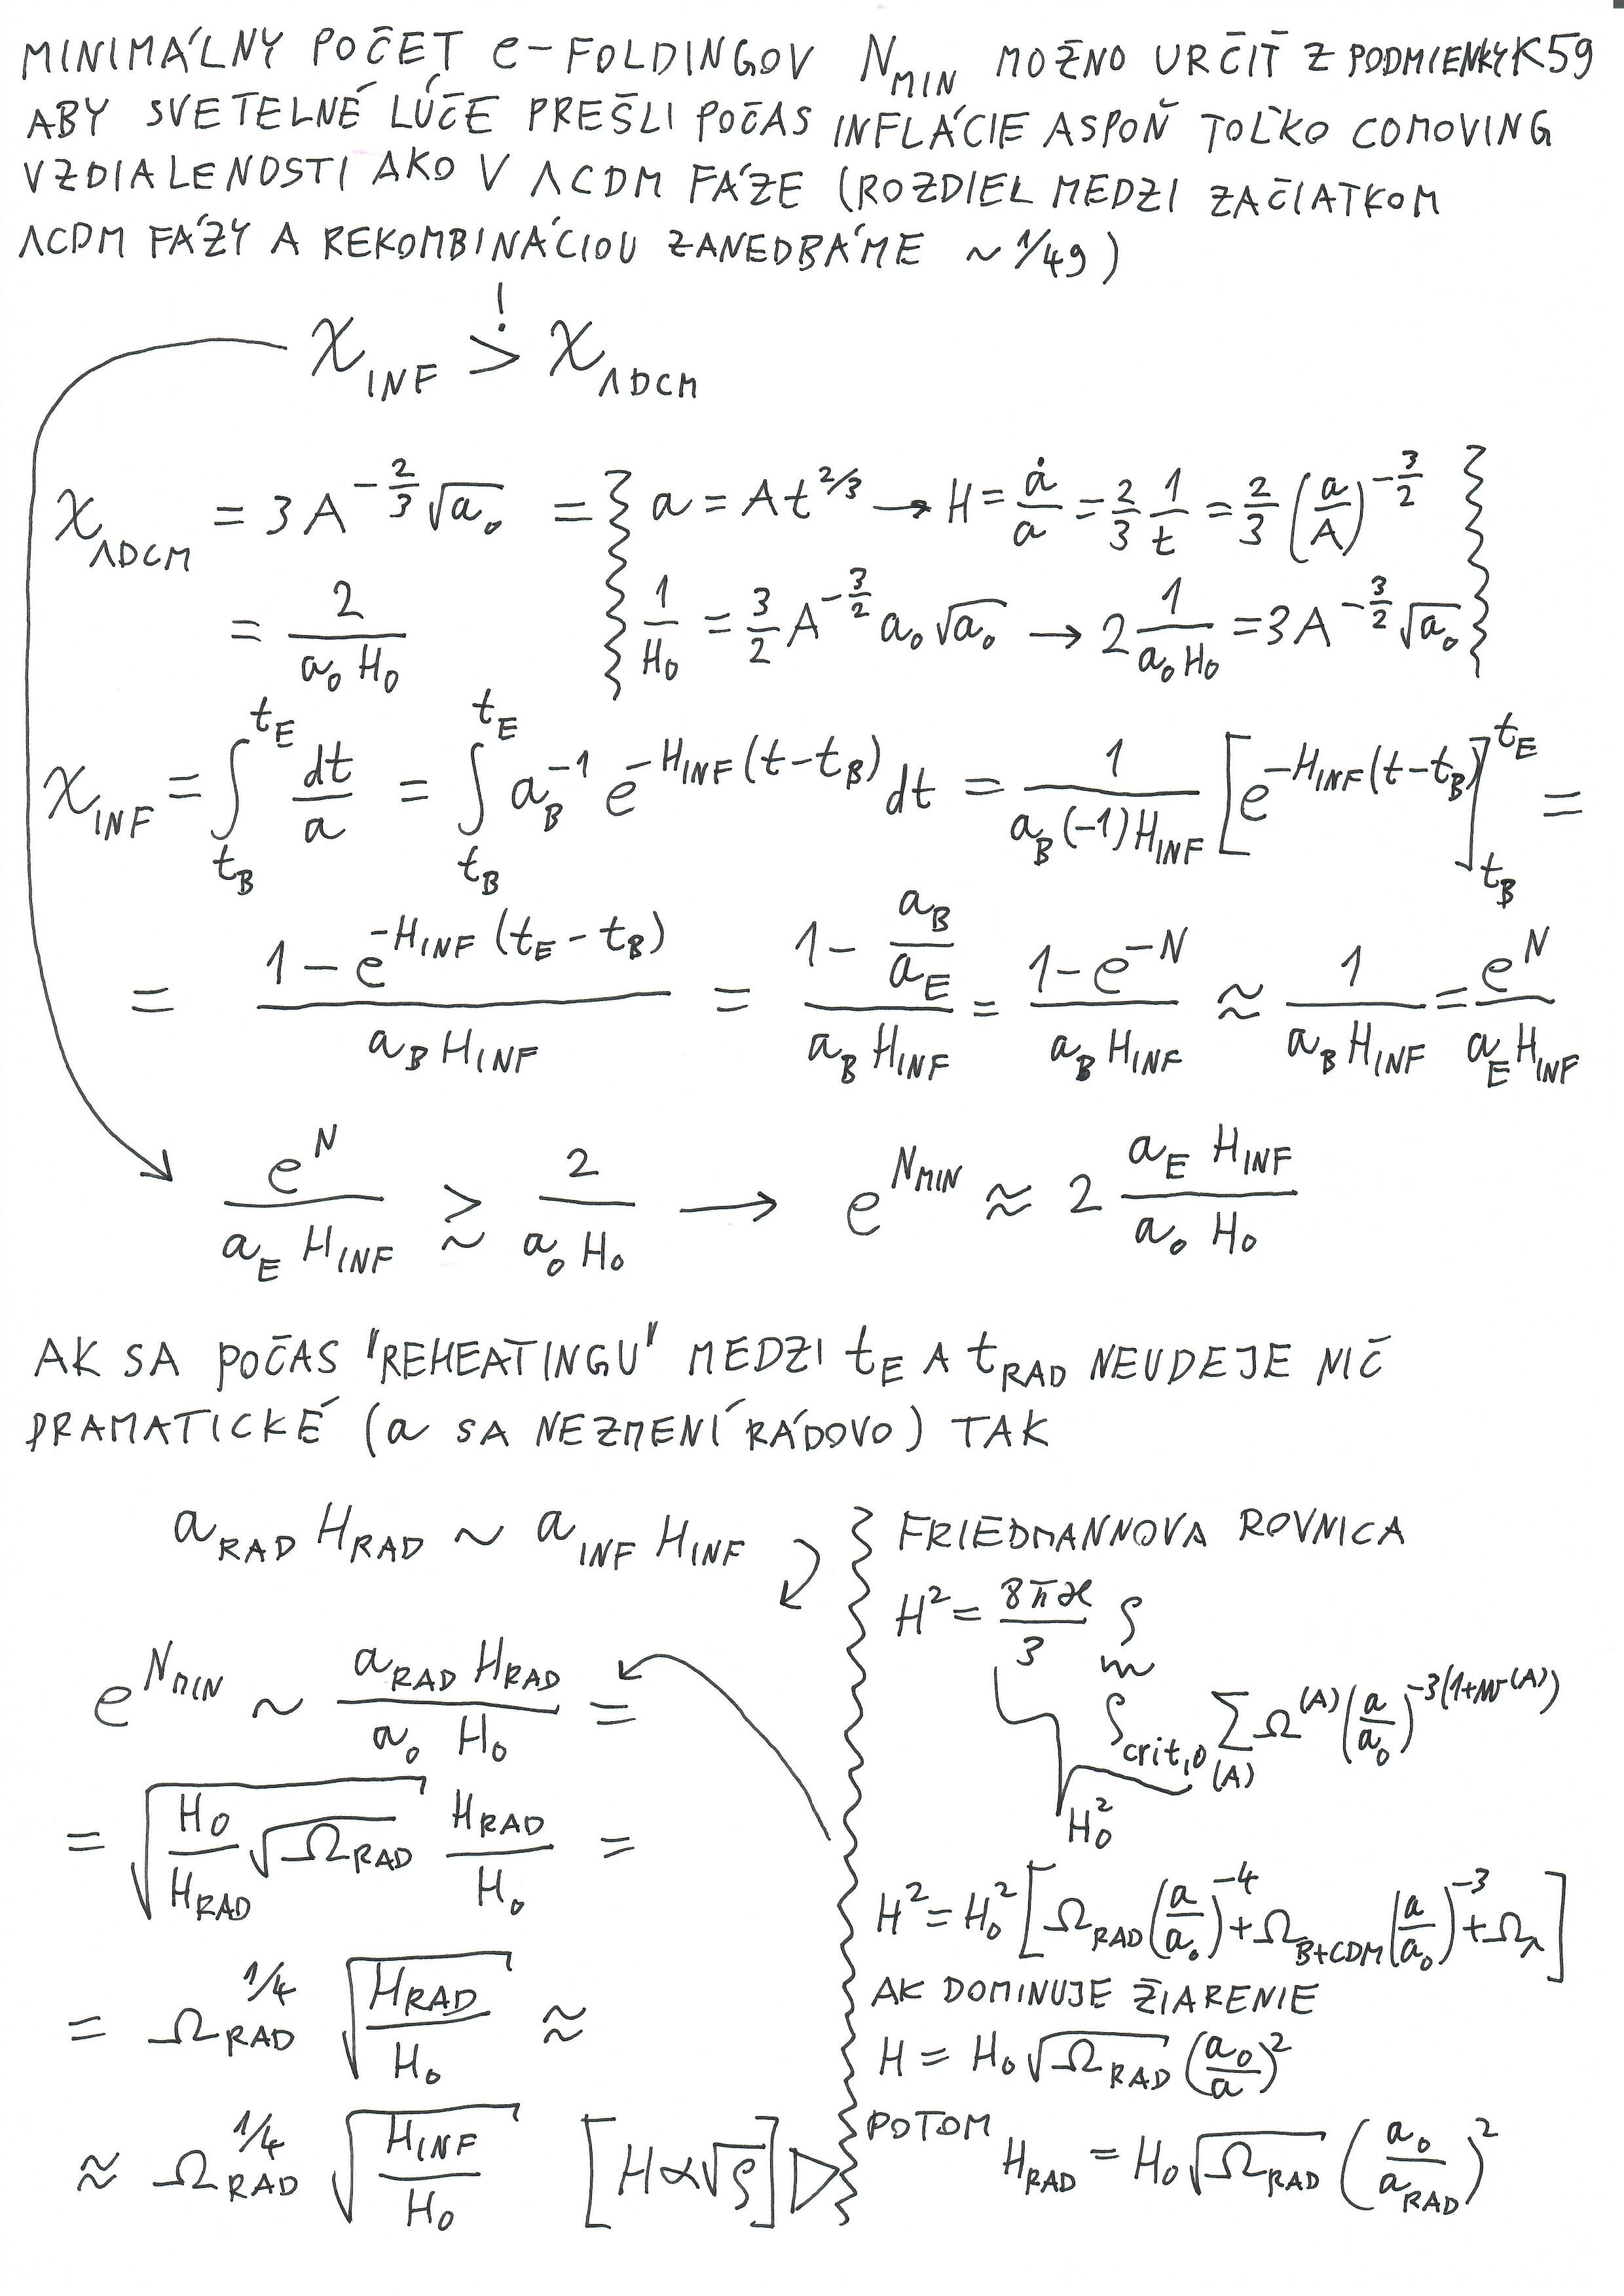 MINIMÁLNY POČET e-FOLDINGOV N_MIN MOŽNO URČIŤ Z PODMIENKY K59
ABY SVETELNÉ LÚČE PREŠLI POČAS INFLÁCIE ASPOŇ TOĽKO COMOVING
VZDIALENOSTI AKO V ΛCDM FÁZE (ROZDIEL MEDZI ZAČIATKOM
ΛCDM FÁZY A REKOMBINÁCIOU ZANEDBÁME ~1/49)
χ_INF >^! χ_ΛDCM
χ_ΛDCM = 3A^{-2/3} √a_0 = { a = At^{2/3} → H = ȧ/a = 2/3 1/t = 2/3 (a/A)^{-3/2} }
= 2/(a_0 H_0) { 1/H_0 = 3/2 A^{-3/2} a_0 √a_0 → 2 1/(a_0 H_0) = 3A^{-3/2} √a_0 }
χ_INF = ∫_{t_B}^{t_E} dt/a = ∫_{t_B}^{t_E} a_B^{-1} e^{-H_INF(t-t_B)} dt = 1/(a_B(-1)H_INF) [e^{-H_INF(t-t_B)}]_{t_B}^{t_E} =
= (1-e^{-H_INF(t_E-t_B)})/(a_B H_INF) = (1-a_B/a_E)/(a_B H_INF) = (1-e^{-N})/(a_B H_INF) ≈ 1/(a_B H_INF) = e^N/(a_E H_INF)
e^N/(a_E H_INF) ≳ 2/(a_0 H_0) → e^{N_MIN} ≈ 2 (a_E H_INF)/(a_0 H_0)
AK SA POČAS "REHEATINGU" MEDZI t_E A t_RAD NEUDEJE NIČ
DRAMATICKÉ (a SA NEZMENÍ RÁDOVO) TAK
a_RAD H_RAD ~ a_INF H_INF
e^{N_MIN} ~ (a_RAD H_RAD)/(a_0 H_0) =
= √(H_0/H_RAD √Ω_RAD) H_RAD/H_0 =
= Ω_RAD^{1/4} √(H_RAD/H_0) ≈
≈ Ω_RAD^{1/4} √(H_INF/H_0) [H ∝ √ρ] ▷
FRIEDMANNOVA ROVNICA
H^2 = 8πϰ/3 ρ
ρ_{crit,0} Σ_{(A)} Ω^{(A)} (a/a_0)^{-3(1+w^{(A)})}
H_0^2
H^2 = H_0^2 [Ω_RAD (a/a_0)^{-4} + Ω_{B+CDM} (a/a_0)^{-3} + Ω_Λ]
AK DOMINUJE ŽIARENIE
H = H_0 √Ω_RAD (a_0/a)^2
POTOM H_RAD = H_0 √Ω_RAD (a_0/a_RAD)^2